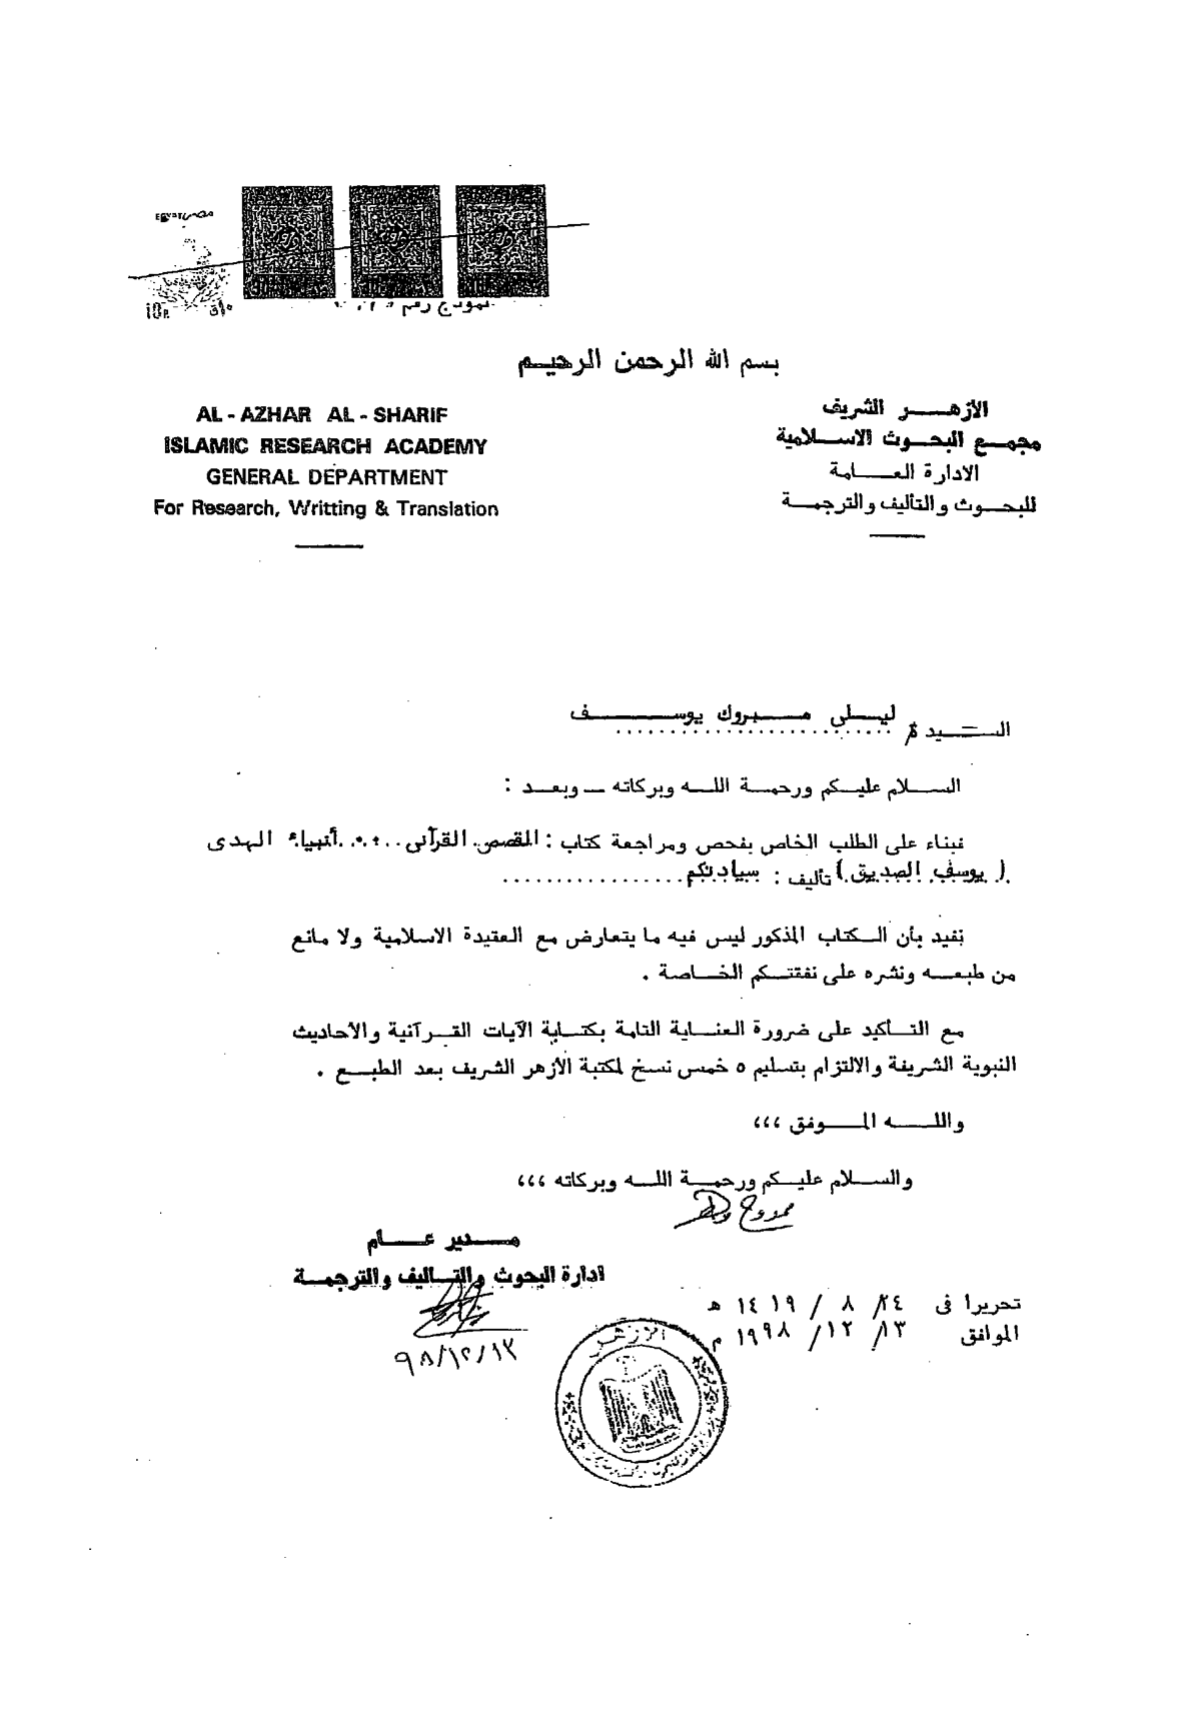 مصر EGYPT
نموذج رقم
بسم الله الرحمن الرحيم
AL - AZHAR AL - SHARIF
ISLAMIC RESEARCH ACADEMY
GENERAL DEPARTMENT
For Research, Writting & Translation
الازهر الشريف
مجمع البحوث الاسلامية
الادارة العامة
للبحوث والتأليف والترجمة
السيدة / ليلى مبروك يوسف
السلام عليكم ورحمة الله وبركاته ــ وبعد :
فبناء على الطلب الخاص بفحص ومراجعة كتاب : القصص القرآنى .... أنبياء الهدى
( يوسف الصديق ) تأليف : سيادتكم ................
نفيد بأن الكتاب المذكور ليس فيه ما يتعارض مع العقيدة الاسلامية ولا مانع
من طبعه ونشره على نفقتكم الخاصة .
مع التأكيد على ضرورة العناية التامة بكتابة الآيات القرآنية والاحاديث
النبوية الشريفة والالتزام بتسليم ٥ خمس نسخ لمكتبة الأزهر الشريف بعد الطبع .
والله الموفق ،،،
والسلام عليكم ورحمة الله وبركاته ،،،
ممدوح
مدير عام
ادارة البحوث والتاليف والترجمة
٩٨/١٢/١٣
تحريرا فى ٢٤ / ٨ / ١٤١٩ هـ
الموافق ١٣ / ١٢ / ١٩٩٨ م
الازهر